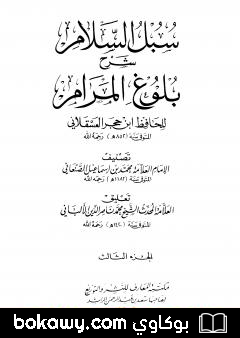 سبل السلام
شرح
بلوغ المرام
للحافظ ابن حجر العسقلاني
المتوفى سنة (٨٥٢هـ) رحمه الله
تصنيف
الإمام العلامة محمد بن إسماعيل الصنعاني
المتوفى سنة (١١٨٢هـ) رحمه الله
تعليق
العلامة المحدث الشيخ محمد ناصر الدين الألباني
المتوفى سنة (١٤٢٠هـ) رحمه الله
الجزء الثالث
مكتبة المعارف للنشر والتوزيع
لصاحبها سعد بن عبد الرحمن الراشد
بوكاوي bokawy.com